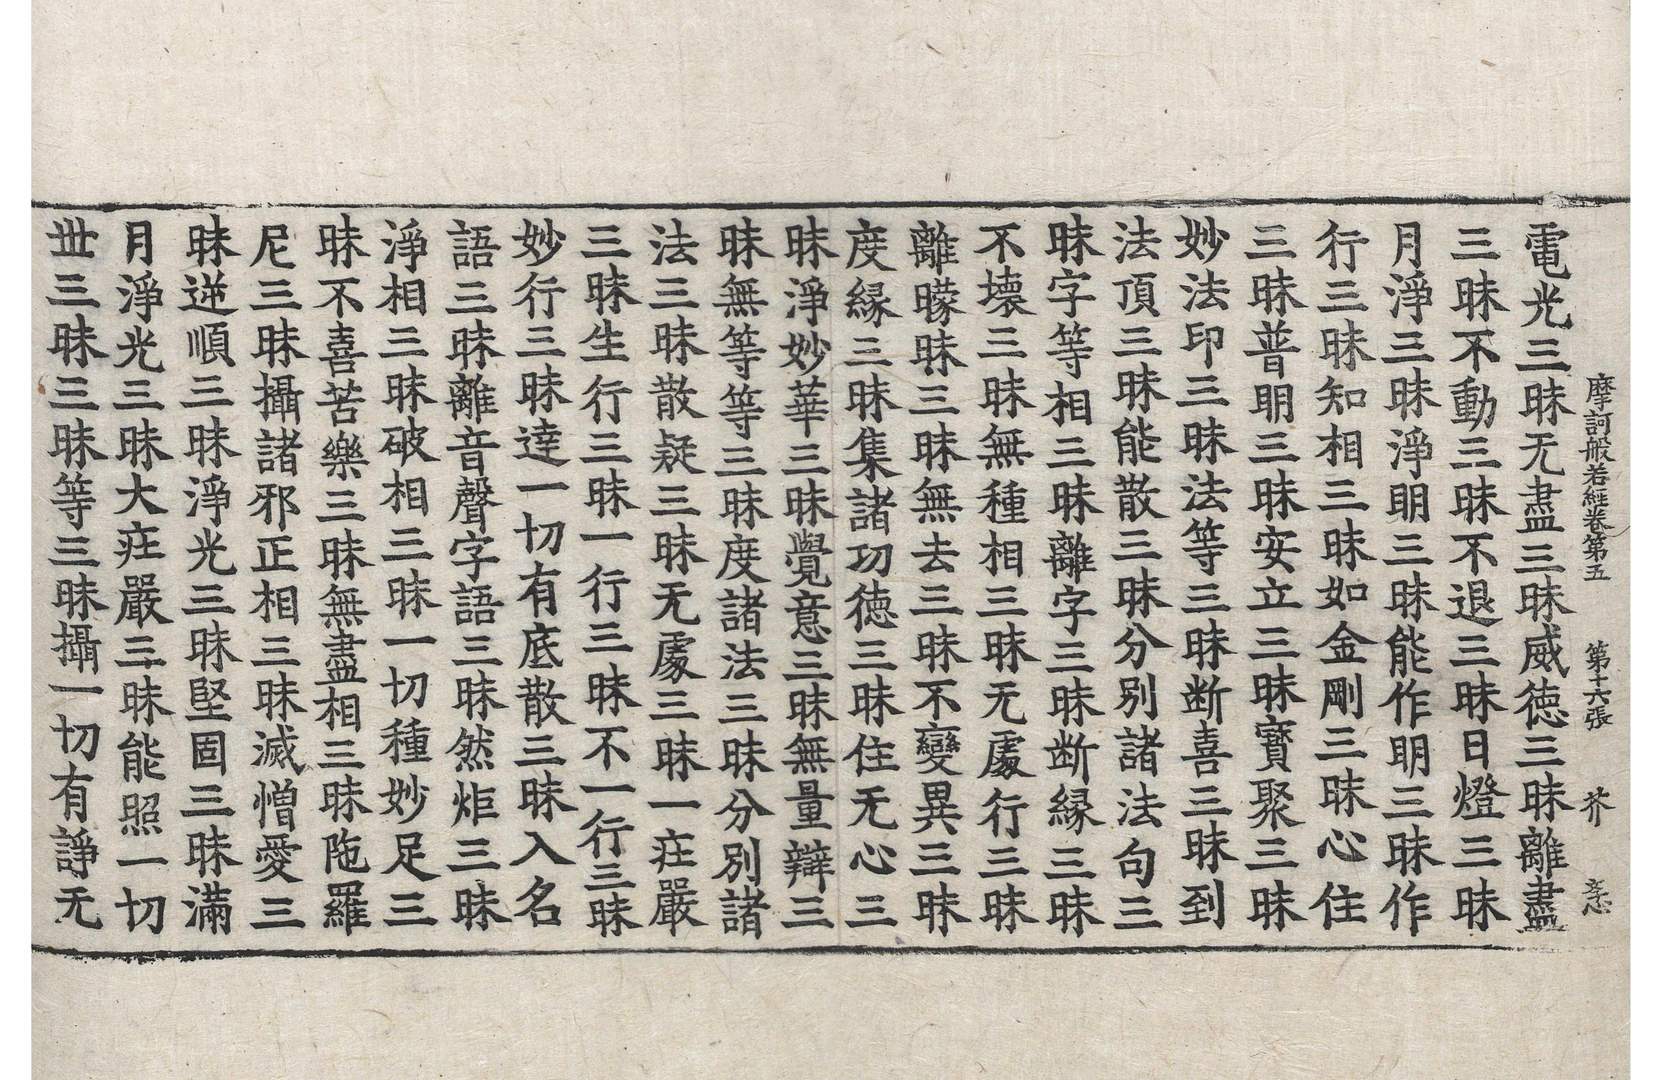 摩訶般若經卷第五　第十六張　芥
電光三昧无盡三昧威徳三昧離盡
三昧不動三昧不退三昧日燈三昧
月淨三昧淨明三昧能作明三昧作
行三昧知相三昧如金剛三昧心住
三昧普明三昧安立三昧寶聚三昧
妙法印三昧法等三昧断喜三昧到
法頂三昧能散三昧分別諸法句三
昧字等相三昧離字三昧断縁三昧
不壞三昧無種相三昧无處行三昧
離曚昧三昧無去三昧不變異三昧
度縁三昧集諸功徳三昧住无心三
昧淨妙華三昧覺意三昧無量辯三
昧無等等三昧度諸法三昧分別諸
法三昧散疑三昧无處三昧一庄嚴
三昧生行三昧一行三昧不一行三昧
妙行三昧達一切有底散三昧入名
語三昧離音聲字語三昧然炬三昧
淨相三昧破相三昧一切種妙足三
昧不喜苦樂三昧無盡相三昧陁羅
尼三昧攝諸邪正相三昧滅憎愛三
昧逆順三昧淨光三昧堅固三昧滿
月淨光三昧大庄嚴三昧能照一切
丗三昧三昧等三昧攝一切有諍无